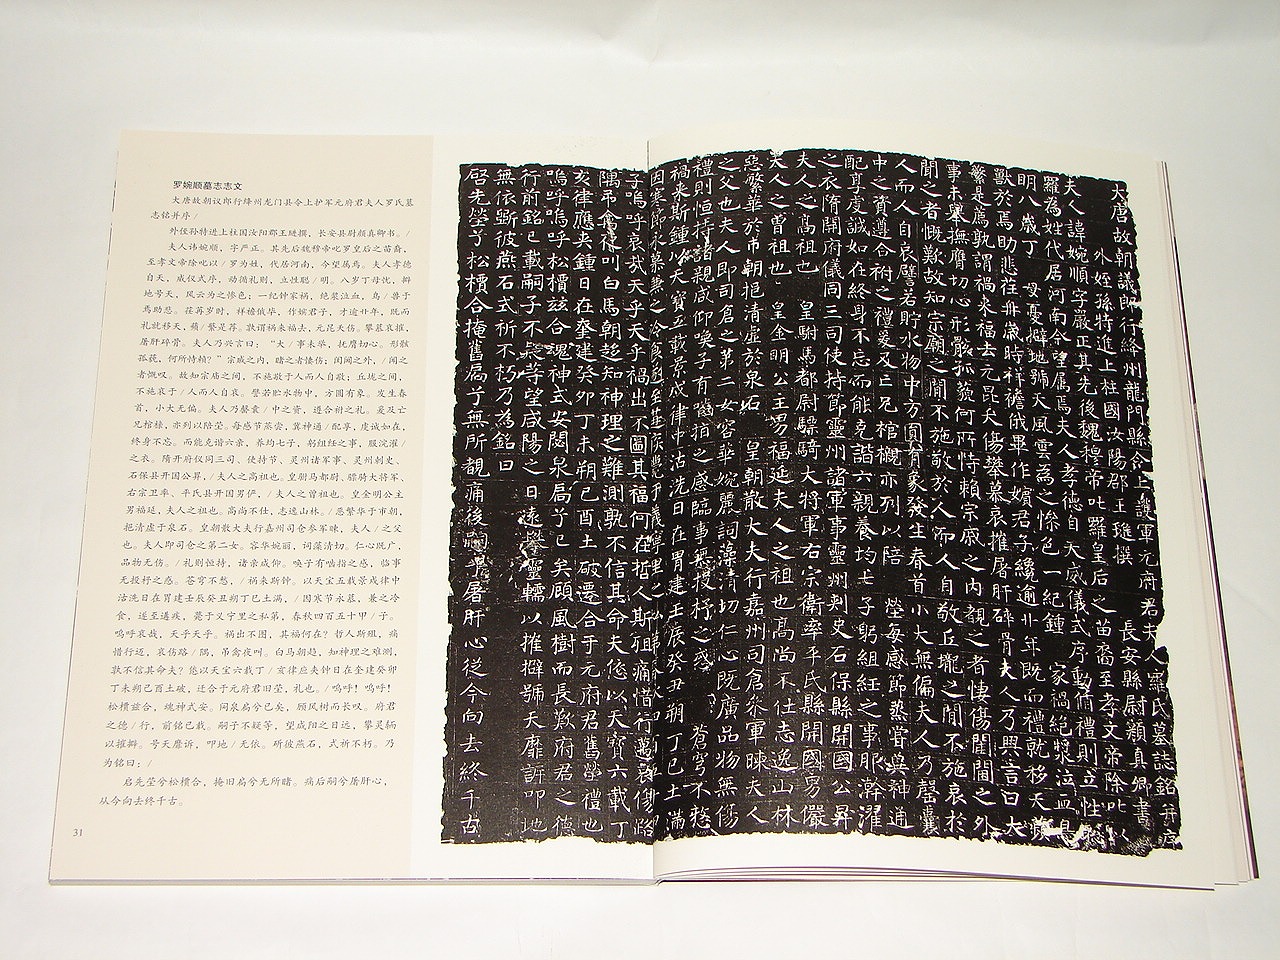 罗婉顺墓志志文
大唐故朝议郎行绛州龙门县令上护军元府君夫人罗氏墓
志铭并序/
外侄孙特进上柱国汝阳郡王琎撰，长安县尉颜真卿书。/
夫人讳婉顺，字严正。其先后魏穆帝叱罗皇后之苗裔，
至孝文帝除叱以/罗为姓，代居河南，今望属焉。夫人孝德
自天，威仪式序，动循礼则，立性聪/明。八岁丁母忧，擗
地号天，风云为之惨色；一纪钟家祸，绝浆泣血，鸟/兽于
焉助悲。荏苒岁时，祥襜俄毕，作嫔君子，才逾廿年，既而
礼就移天，蘋/蘩是荐。孰谓祸来福去，元昆夭伤。攀慕哀摧，
屠肝碎骨。夫人乃兴言曰：“大/事未举，抚膺切心。形骸
孤藐，何所恃赖？”宗戚之内，睹之者悽伤；闺阃之外，/闻之
者慨叹。故知宗庙之间，不施敬于人而人自敬；丘垅之间，
不施哀于/人而人自哀。譬若贮水物中，方圆有象。发生春
首，小大无偏。夫人乃罄囊/中之资，遵合祔之礼。爰及亡
兄棺榇，亦列以陪茔。每感节蒸尝，冀神通/配享，虔诚如在，
终身不忘。而能克谐六亲，养均七子，躬组纴之事，服浣濯/
之衣。隋开府仪同三司、使持节、灵州诸军事、灵州刺史、
石保县开国公昇，/夫人之高祖也。皇驸马都尉、骠骑大将军、
右宗卫率、平氏县开国男俨，/夫人之曾祖也。皇金明公主
男福延，夫人之祖也。高尚不仕，志逸山林。/恶繁华于市朝，
挹清虚于泉石。皇朝散大夫行嘉州司仓参军暕，夫人/之父
也。夫人即司仓之第二女。容华婉丽，词藻清切。仁心既广，
品物无伤。/礼则恒持，诸亲咸仰。唤子有啮指之感，临事
无投杼之惑。苍穹不慭，/祸来斯钟。以天宝五载景戌律中
沽洗日在胃建壬辰癸丑朔丁巳土满，/因寒节永慕，兼之冷
食，遂至遘疾，薨于义宁里之私第，春秋四百五十甲/子。
呜呼哀哉，天乎天乎。祸出不图，其福何在？哲人斯殂，痛
惜行迈，哀伤路/隅，吊禽夜叫。白马朝趋，知神理之难测，
孰不信其命夫？恁以天宝六载丁/亥律应夹钟日在奎建癸卯
丁未朔己酉土破，迁合于元府君旧茔，礼也。/呜呼！呜呼！
松槚兹合，魂神式安。闷泉扃兮已矣，顾风树而长叹。府君
之德/行，前铭已载。嗣子不疑等，望咸阳之日远，攀灵輀
以摧擗。号天靡诉，叩地/无依。斫彼燕石，式祈不朽。乃
为铭曰：/
启先茔兮松槚合，掩旧扃兮无所睹。痛后嗣兮屠肝心，
从今向去终千古。
31
大唐故朝議郎行絳州龍門縣令上護軍元府君夫人羅氏墓誌銘并序
外姪孫特進上柱國汝陽郡王璡撰　長安縣尉顏真卿書
夫人諱婉順字嚴正其先後魏穆帝叱羅皇后之苗裔至孝文帝除叱以
羅為姓代居河南今望屬焉夫人孝德自天威儀式序動循禮則立性
明八歲丁母憂擗地號天風雲為之慘色一紀鍾家禍絕漿泣血鳥
獸於焉助悲荏苒歲時祥襜俄畢作嬪君子纔逾廿年既而禮就移天蘋
蘩是薦孰謂禍來福去元昆夭傷攀慕哀摧屠肝碎骨夫人乃興言曰大
事未舉撫膺切心形骸孤藐何所恃賴宗戚之內覩之者悽傷閨閫之外
聞之者慨歎故知宗廟之間不施敬於人而人自敬丘壠之間不施哀於
人而人自哀譬若貯水物中方圓有象發生春首小大無偏夫人乃罄囊
中之資遵合祔之禮爰及亡兄棺櫬亦列以陪塋每感節蒸嘗冀神通
配享虔誠如在終身不忘而能克諧六親養均七子躬組紝之事服澣濯
之衣隋開府儀同三司使持節靈州諸軍事靈州刺史石保縣開國公昇
夫人之髙祖也　皇駙馬都尉驃騎大將軍右宗衛率平氏縣開國男儼
夫人之曾祖也　皇金明公主男福延夫人之祖也髙尚不仕志逸山林
惡繁華於市朝挹清虛於泉石　皇朝散大夫行嘉州司倉參軍暕夫人
之父也夫人即司倉之第二女容華婉麗詞藻清切仁心既廣品物無傷
禮則恒持諸親咸仰喚子有嚙指之感臨事無投杼之惑　蒼穹不慭
禍來斯鍾以天寶五載景戌律中沽洗日在胃建壬辰癸丑朔丁巳土滿
因寒節永慕兼之冷食遂至遘疾薨于義寧里之私第春秋四百五十甲
子嗚呼哀哉天乎天乎禍出不圖其福何在哲人斯殂痛惜行邁哀傷路
隅吊禽夜叫白馬朝趍知神理之難測孰不信其命夫恁以天寶六載丁
亥律應夾鍾日在奎建癸卯丁未朔己酉土破遷合于元府君舊塋禮也
嗚呼嗚呼松檟茲合魂神式安閟泉扃兮已矣顧風樹而長歎府君之德
行前銘已載嗣子不疑等望咸陽之日遠攀靈轜以摧擗號天靡訴叩地
無依斲彼燕石式祈不朽乃為銘曰
啓先塋兮松檟合掩舊扃兮無所覩痛後嗣兮屠肝心從今向去終千古